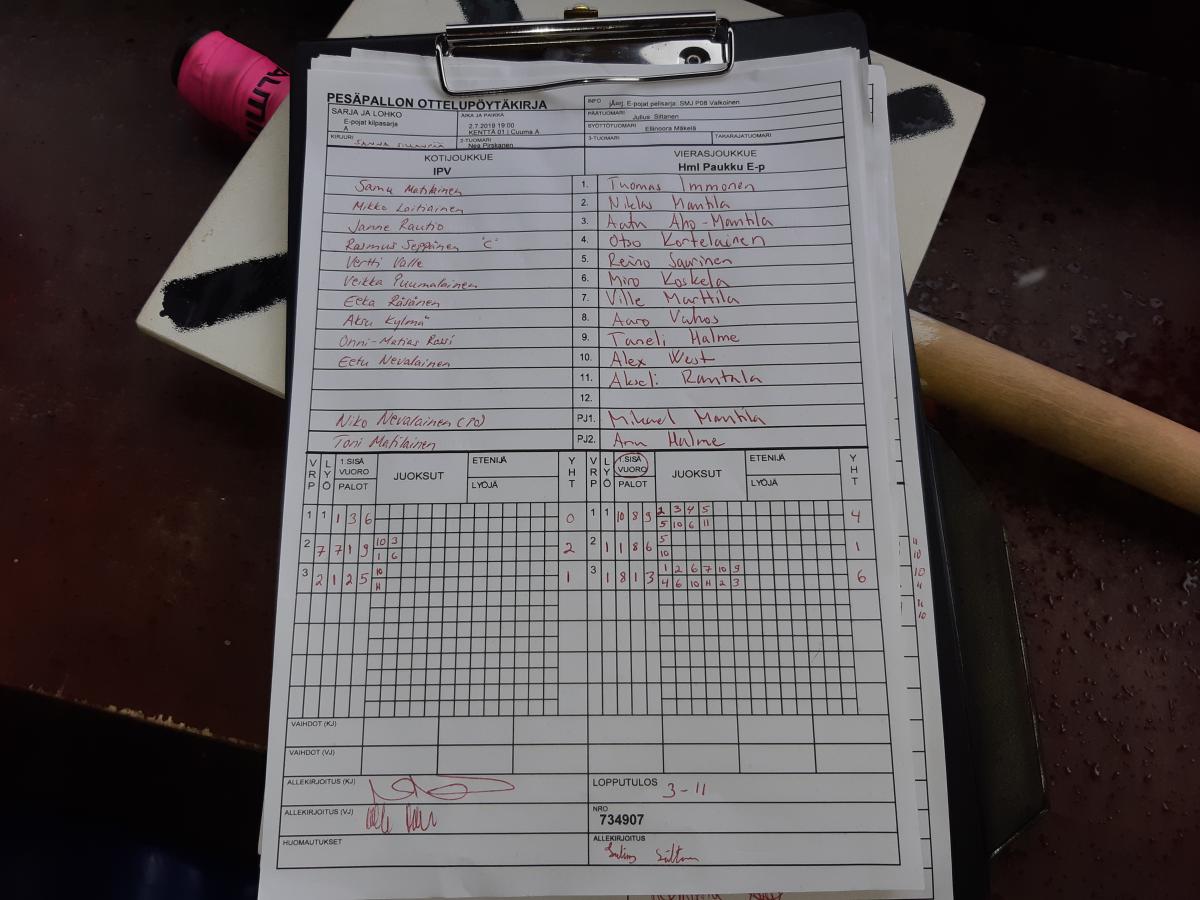 ALMI
PESÄPALLON OTTELUPÖYTÄKIRJA
SARJA JA LOHKO
E-pojat kilpasarja
A
AIKA JA PAIKKA
2.7.2019 19:00
KENTTÄ 01 | Cuuma A
INFO jÄsrj. E-pojat pelisarja: SMJ P08 Valkoinen
PÄÄTUOMARI Julius Siltanen
SYÖTTÖTUOMARI Ellinoora Mäkelä
KIRJURI
2-TUOMARI
Nea Pirskanen
3-TUOMARI
TAKARAJATUOMARI
KOTIJOUKKUE
IPV
VIERASJOUKKUE
Hml Paukku E-p
Samu Matilainen 1. Tuomas Immonen
Mikko Loitiainen 2. Niklas Mantila
Janne Rautio 3. Aatu Aho-Mantila
Rasmus Seppänen "C" 4. Otso Kortelainen
Vertti Valle 5. Reino Saurinen
Veikka Puumalainen 6. Miro Koskela
Eeka Räsänen 7. Ville Marttila
Aksu Kylmä 8. Aaro Vahos
Onni-Matias Rossi 9. Taneli Halme
Eetu Nevalainen 10. Alex West
11. Akseli Rantala
12.
Niko Nevalainen (PO) PJ1. Mikael Mantila
Toni Matilainen PJ2. Anu Halme
VRP LYÖ 1.SISÄ VUORO PALOT JUOKSUT ETENIJÄ LYÖJÄ YHT VRP LYÖ 1.SISÄ VUORO PALOT JUOKSUT ETENIJÄ LYÖJÄ YHT
1 1 1 3 6 0 1 1 10 8 9 2 3 4 5 4
5 10 6 11
2 7 7 1 9 10 3 2 2 1 1 8 6 5 1
1 6 10
3 2 1 2 5 10 1 3 1 8 1 3 1 2 6 7 10 9 6
H 4 6 10 H 2 3
VAIHDOT (KJ)
VAIHDOT (VJ)
ALLEKIRJOITUS (KJ)
LOPPUTULOS 3-11
ALLEKIRJOITUS (VJ)
NRO
734907
HUOMAUTUKSET
ALLEKIRJOITUS